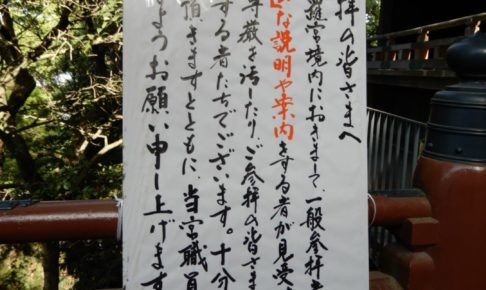 拝の皆さまへ
宮境内におきまして、一般参拝
な説明や案内をする者が見受
尊厳を汚したり、ご参拝の皆さま
する者たちでございます。十分
頂きますとともに、当宮職員
ようお願い申し上げます